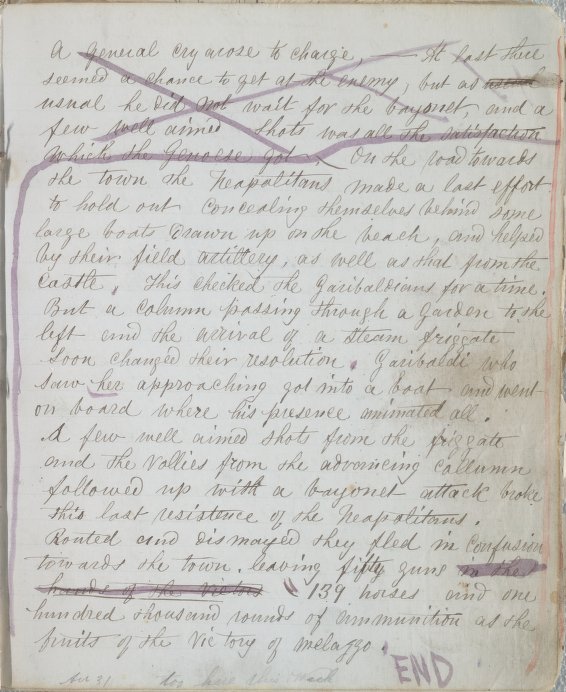 A general cry arose to charge, — At last there
seemed a chance to get at the enemy, but as usual
usual he did not wait for the bayonet, and a
few well aimed shots was all the satisfaction
which the Genoese got. On the road towards
the town the Neapolitans made a last effort
to hold out concealing themselves behind some
large boats drawn up on the beach, and helped
by their field artillery, as well as that from the
Castle. This checked the Garibaldians for a time.
But a column passing through a garden to the
left and the arrival of a steam friggate
soon changed their resolution. Garibaldi who
saw her approaching got into a boat and went
on board where his presence animated all.
A few well aimed shots from the friggate
and the vollies from the advancing collumn
followed up with a bayonet attack broke
this last resistence of the Neapolitans.
Routed and dismayed they fled in confusion
towards the town. leaving fifty guns in the
hands of the victors 139 horses and one
hundred thousand rounds of ammunition as the
fruits of the Victory of melazzo.
END
to here this week